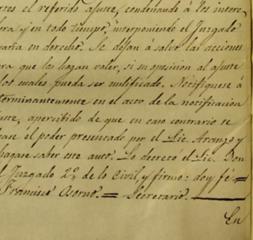 el referido ajuste, condenando á los intere
ora y en todo tiempo, interponiendo el Juzgado
en derecho. Se dejan á salvo las acciones
ra que las hagan valer, si su posicion al ajuste
los cuales pueda ser notificado. Notifiquese á
terminantemente en el acto de la notificacion
apercibido de que en caso contrario se
el poder presentado por el Lic. Aranzo y
hagase saber este auto. Lo decretó el Lic. Don
Juzgado 2º de lo Civil, y firmó: doy fé=
Francisco Osorno.= Secretario.
En